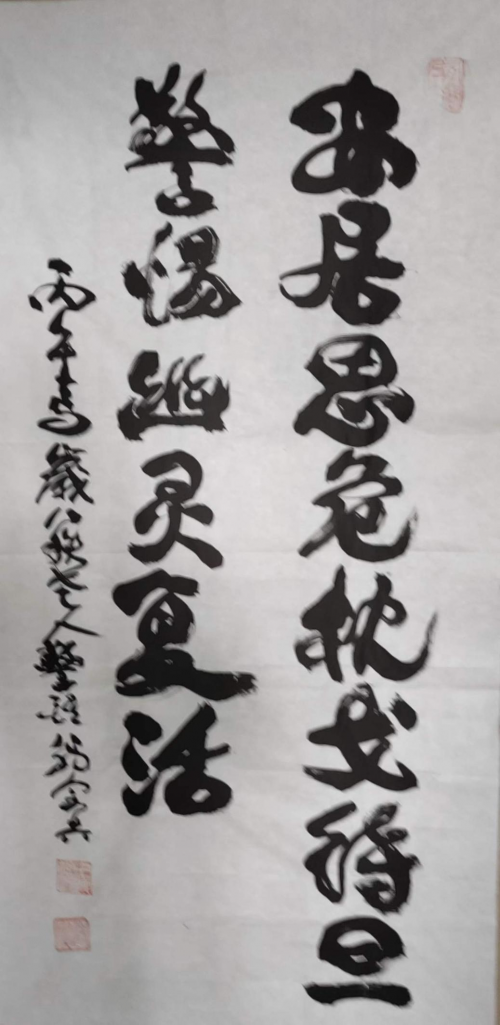 安居思危枕戈待旦
警惕幽灵复活
丙午馬歲老人警語